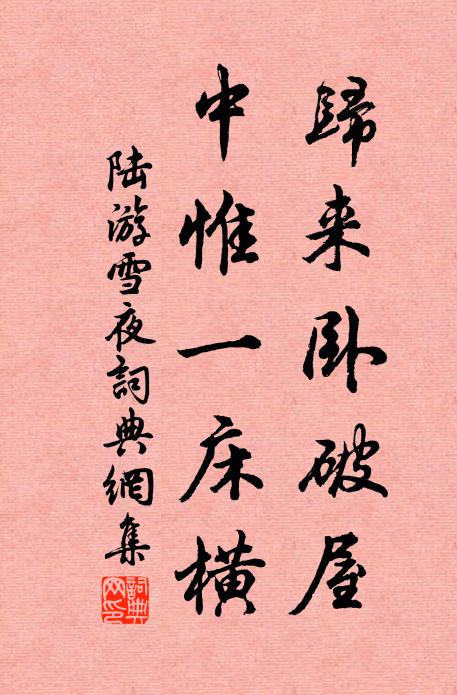 歸来卧破屋
中惟一床横
陆游雪夜詞典網集
詞典网印